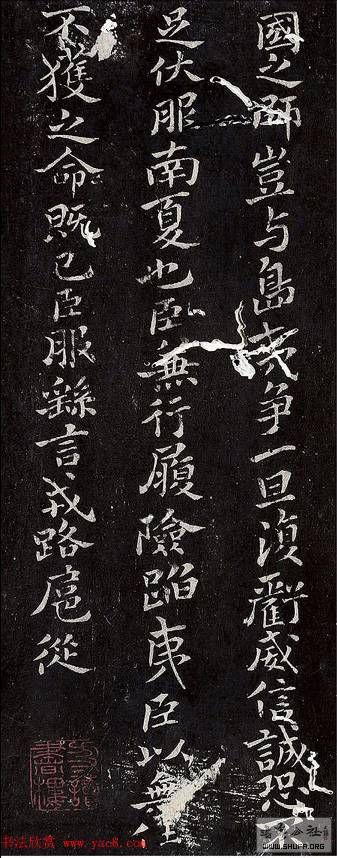 國之師豈与島夷争一旦復虧威信誠恐
足伏服南夏也臣無行履險蹈夷臣以無任
不獲之命既已臣服繇言戎路扈從
书法欣赏 www.yac8.com
WWW.SHUFA.ORG